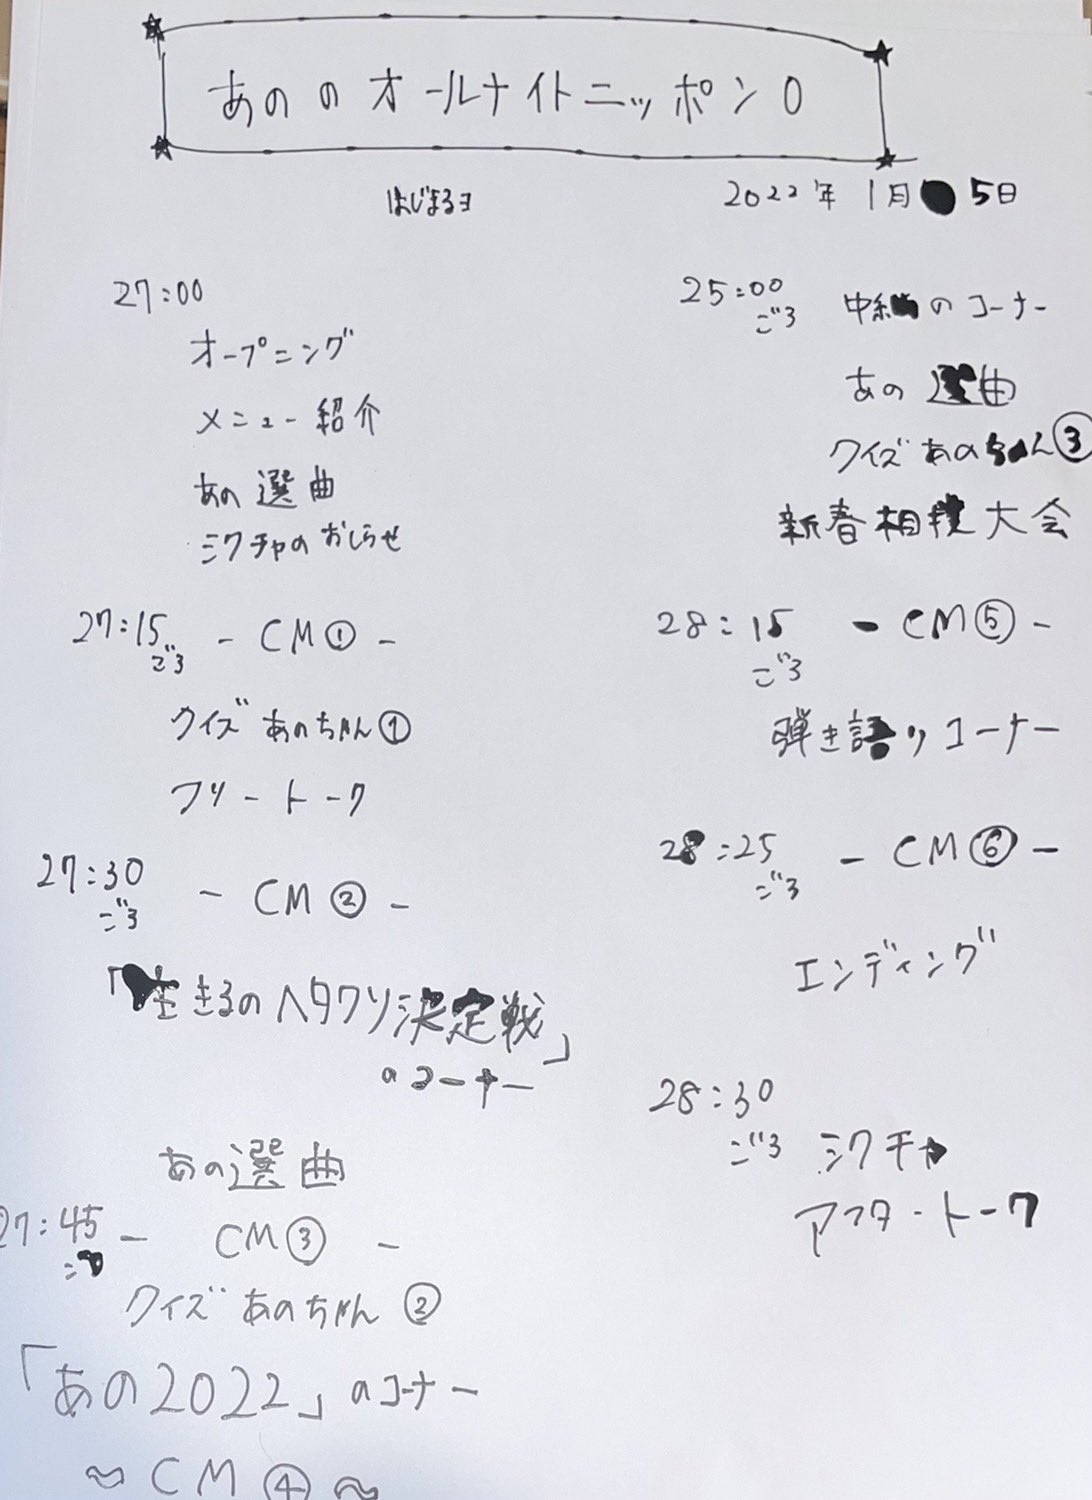 あののオールナイトニッポン0
はじまるヨ
2022年1月5日
27:00
オープニング
メニュー紹介
あの選曲
ミクチャのおしらせ
27:15ごろ - CM① -
クイズあのちゃん①
フリートーク
27:30ごろ - CM② -
「生きるのヘタクソ決定戦」
のコーナー
あの選曲
27:45ごろ - CM③ -
クイズあのちゃん②
「あの2022」のコーナー
〜CM④〜
25:00ごろ 中継のコーナー
あの選曲
クイズあのちゃん③
新春相撲大会
28:15ごろ - CM⑤ -
弾き語りコーナー
28:25ごろ - CM⑥ -
エンディング
28:30ごろ ミクチャ
アフタートーク